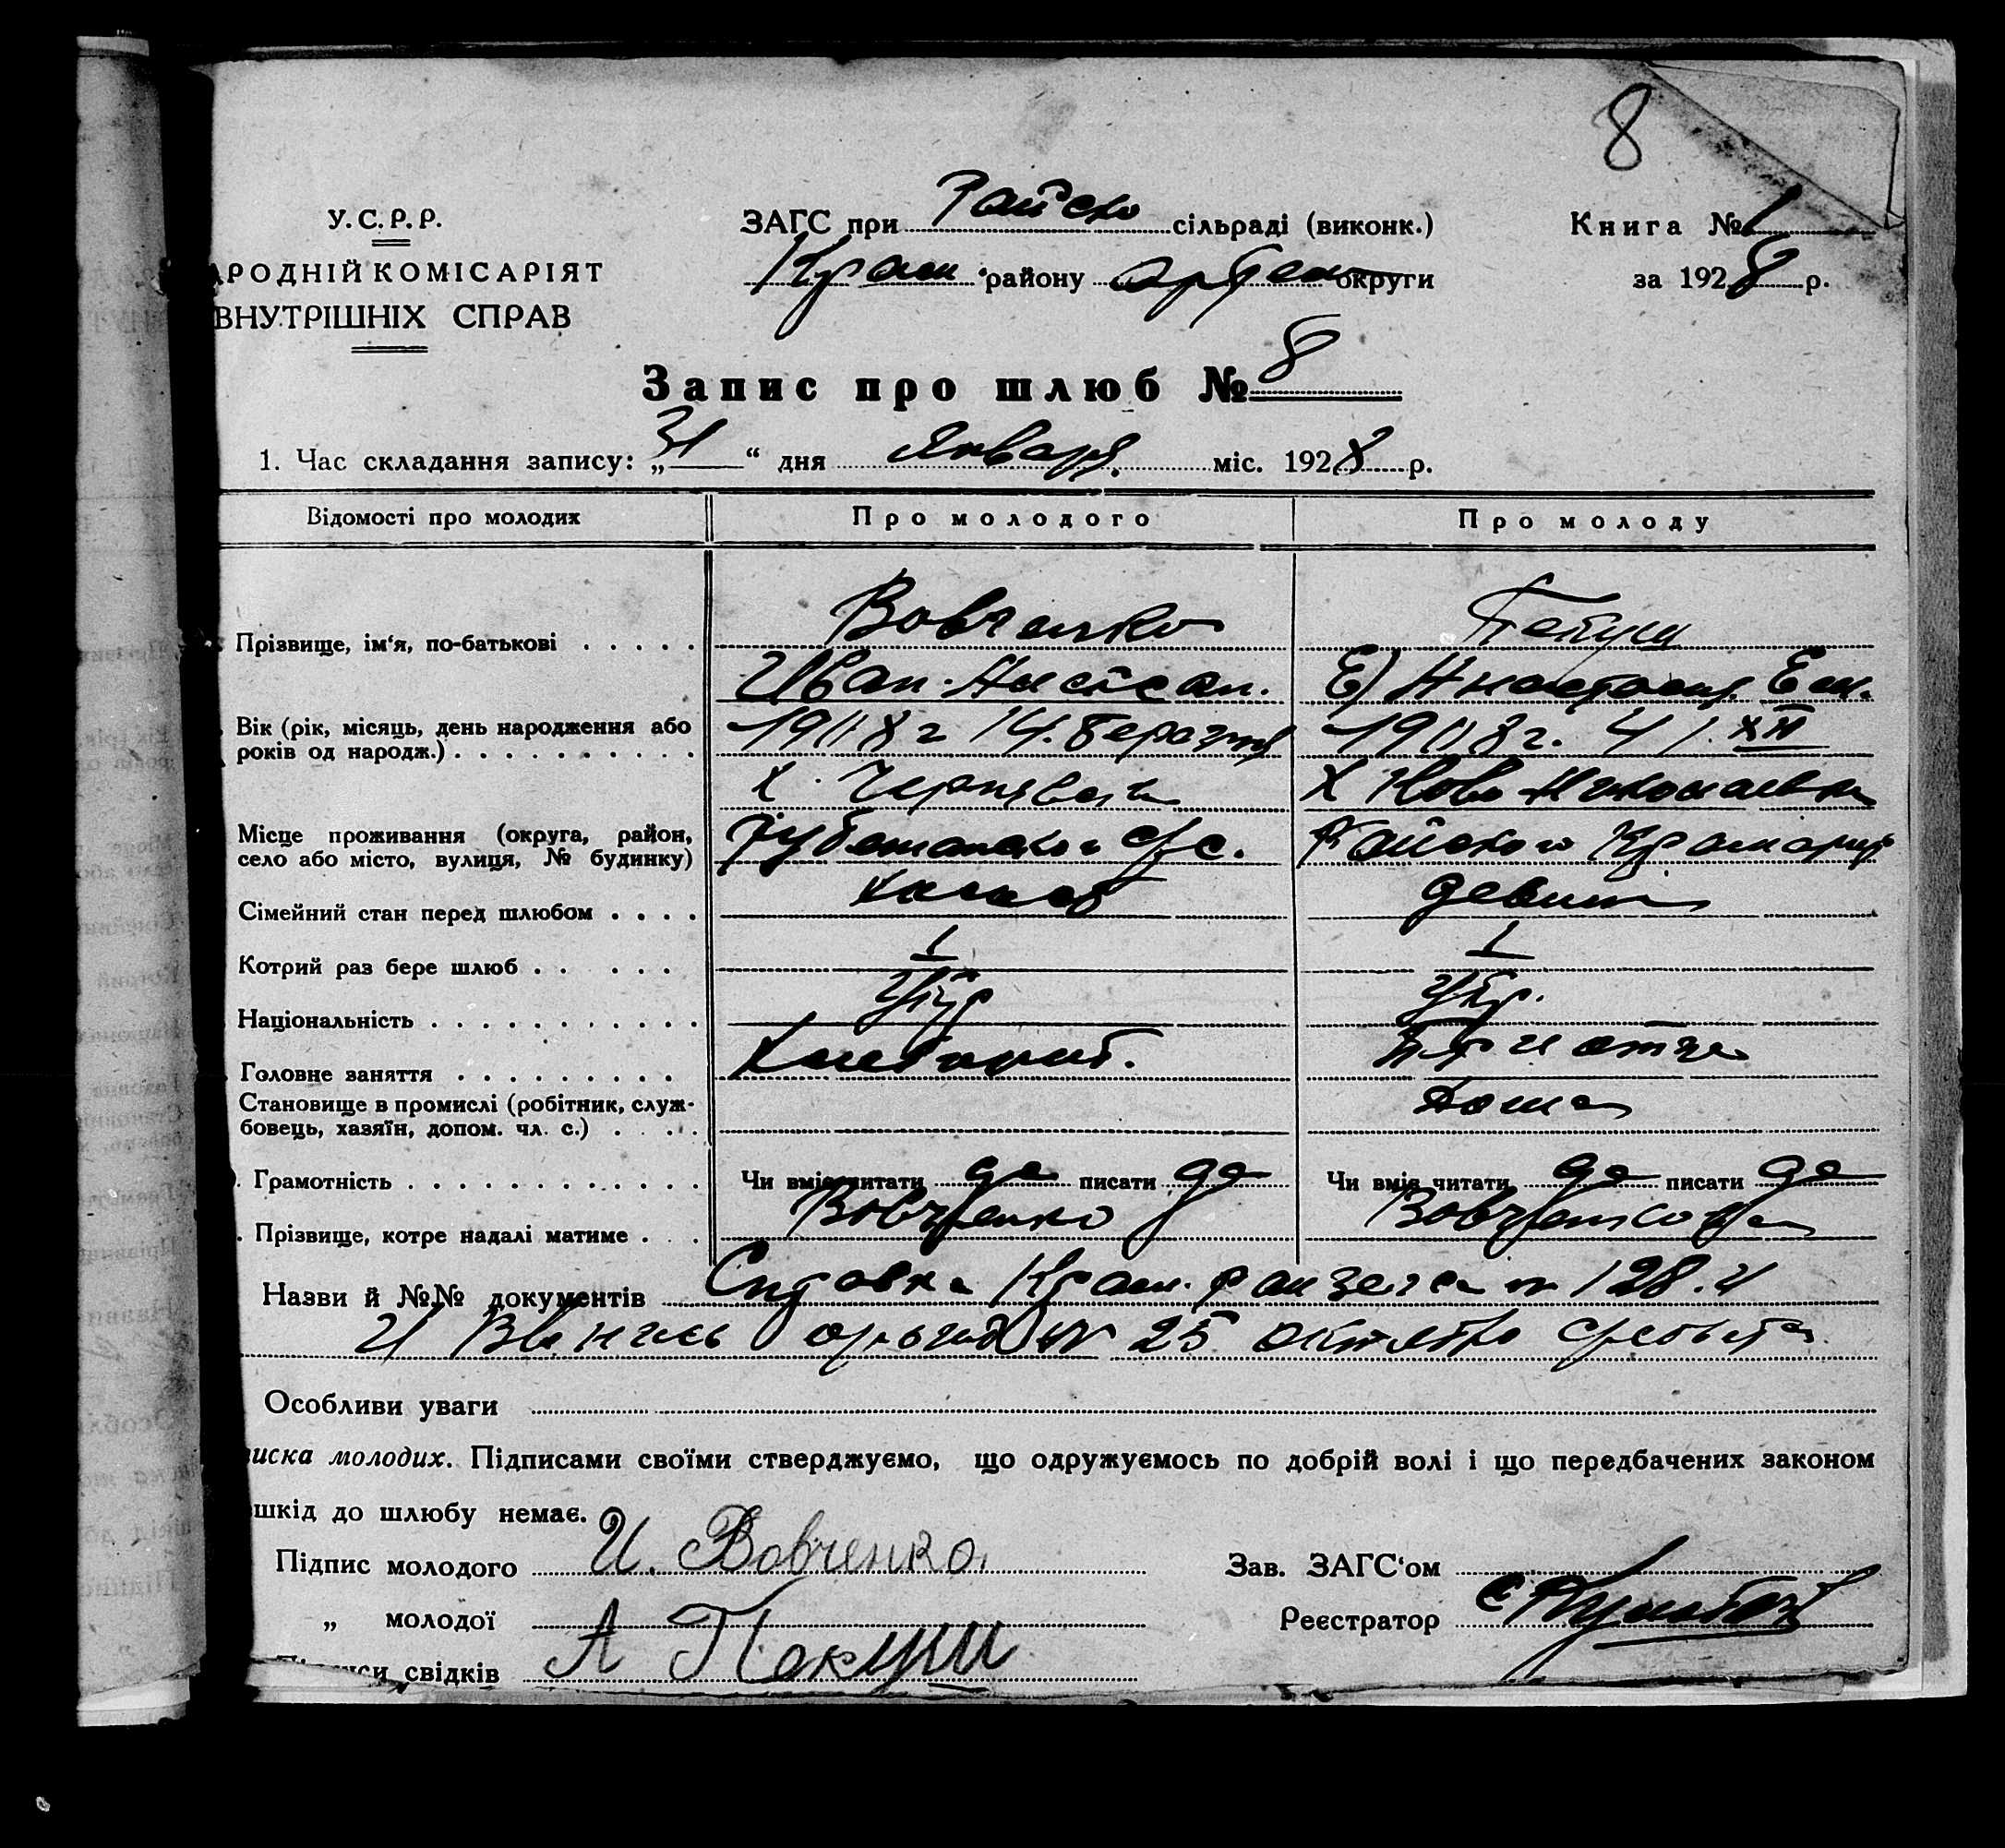 8
У.С.Р.Р.
АРОДНІЙ КОМІСАРІЯТ
ВНУТРІШНІХ СПРАВ
ЗАГС при Райско сільраді (виконк.)
Крам району округи
Книга № 1
за 1928 р.
Запис про шлюб № 8
1. Час складання запису: „31“ дня Января міс. 1928 р.
Відомості про молодих Про молодого Про молоду
Прізвище, ім‘я, по-батькові . . . . . Вовченко
Иван Е)
Вік (рік, місяць, день народження або
років од народж.) . . . . . . . . . .
Х. Х Ново Николаевка
Місце проживання (округа, район,
село або місто, вулиця, № будинку) Райского
Сімейний стан перед шлюбом . . . . холост девица
Котрий раз бере шлюб . . . . . . 1 1
Національність . . . . . . . . . . . Укр Укр.
Головне заняття . . . . . . . . . Хлебороб. при отце
Становище в промислі (робітник, служ-
бовець, хазяїн, допом. чл. с.) . . . . дома
Грамотність . . . . . . . . . . . . Чи вміє читати да писати да Чи вміє читати да писати да
Прізвище, котре надалі матиме . . . Вовченко Вовченкова
Назви й №№ документів Справка Крам. райзагса № 128. и
И 25
Особливи уваги
иска молодих. Підписами своїми стверджуємо, що одружуємось по добрій волі і що передбачених законом
шкід до шлюбу немає.
Підпис молодого И. Вовченко. Зав. ЗАГС‘ом
„ молодої Реєстратор
си свідків А Пекуш